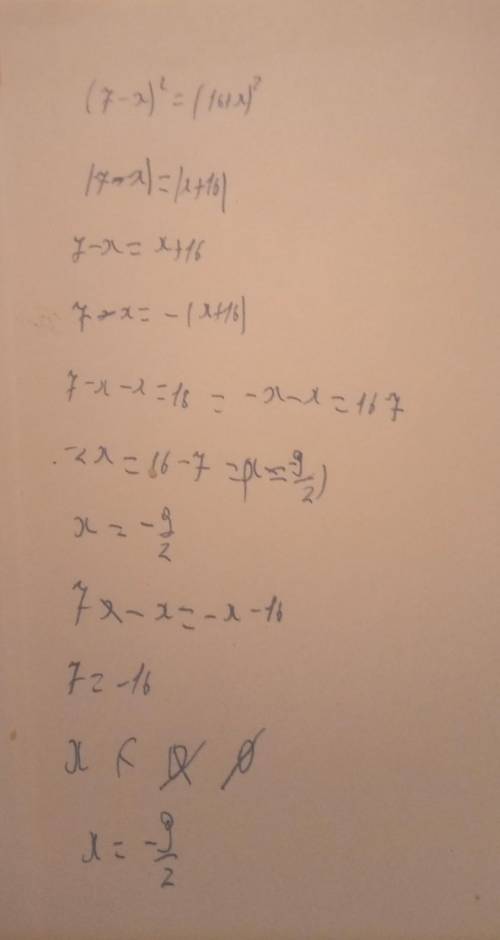 (7-x)² = (16+x)²
|7-x| = |x+16|
7-x = x+16
7-x = -(x+16)
7-x-x=16 = -x-x=16 7
-2x = 16-7 = (x=-9/2)
x = -9/2
7 - x = -x-16
7 = -16
x ∈
x = -9/2